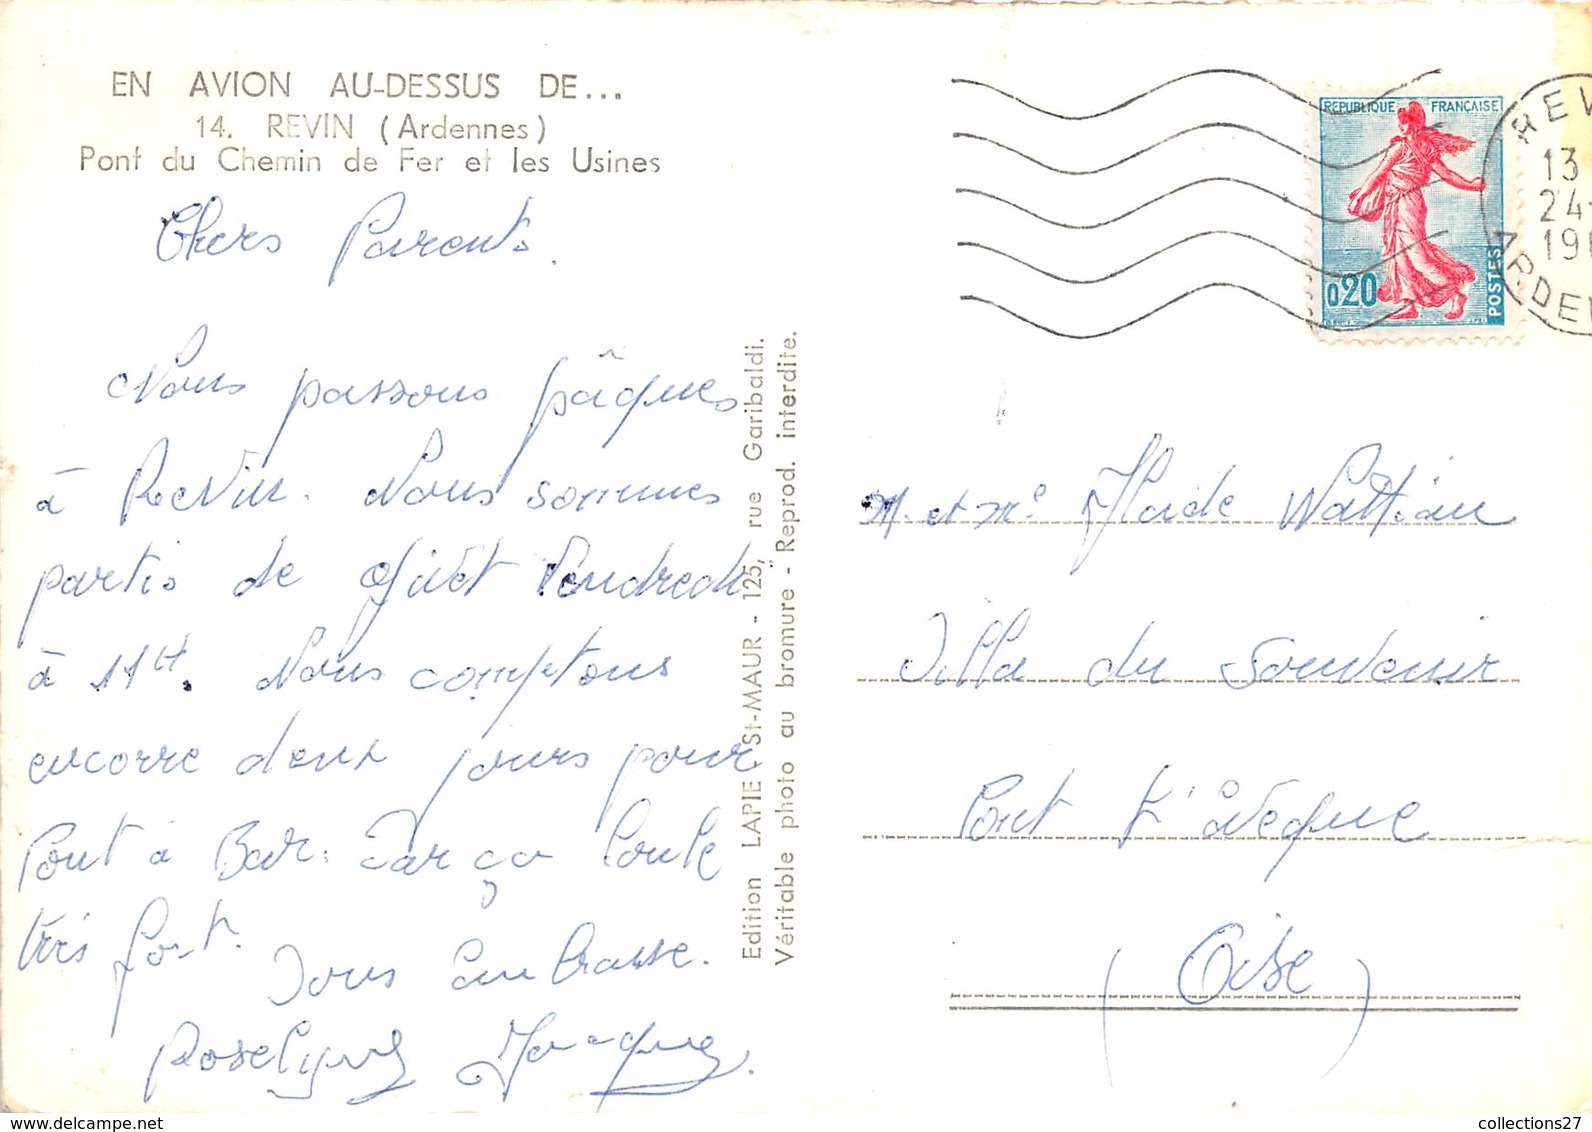 EN AVION AU-DESSUS DE...
14. REVIN (Ardennes)
Pont du Chemin de Fer et les Usines
Chers Parents.
Nous passons pâques
à Revin. Nous sommes
partis de Givet Vendredi
à 11H. Nous comptons
encorre deux jours pour
Pont à Bar. Car ça coule
très fort.
Vous embrasse.
Roselyne Jacques.
Edition LAPIE St-MAUR - 125, rue Garibaldi.
Véritable photo au bromure - Reprod. interdite.
REPUBLIQUE FRANÇAISE
0,20
POSTES
13
24-
ARDEN
M. et Me Wattiau
Villa du Souvenir
Pont L'évêque
(Oise)
collections27